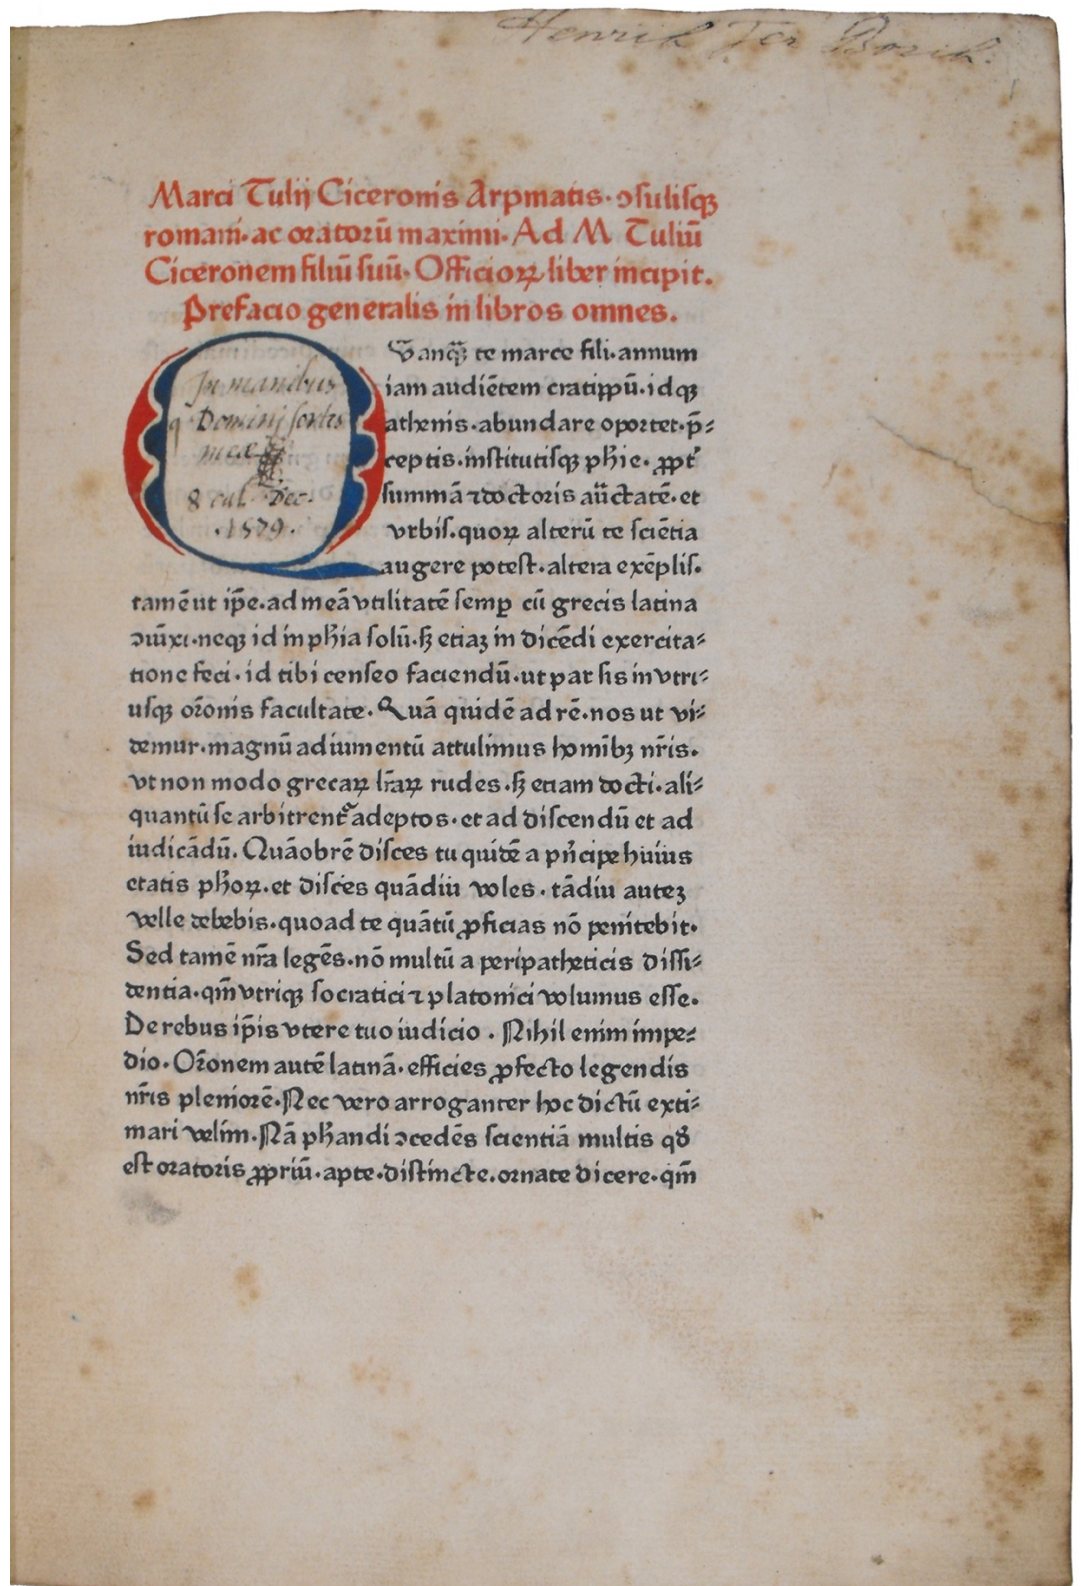 Henrik Ter Borch.
Marci Tulij Ciceronis Arpinatis· ↄsulisqꝫ
romani· ac oratorū maximi· Ad M Tuliū
Ciceronem filiū suū· Officioꝝ liber incipit.
Prefacio generalis in libros omnes.
In manibus
Domini sortes
meae
8 cal. Dec.
·1579·
Vanqꝫ te marce fili· annum
iam audiētem cratippū· idqꝫ
athenis· abundare oportet· p̄⸗
ceptis· institutisqꝫ ph̄ie· ꝓpt᷑
summā ⁊ doctoris auctatē· et
vrbis· quoꝝ alterū te sciētia
augere potest· altera exēplis·
tamē ut ip̄e· ad meā vtilitatē semꝑ cū grecis latina
ↄiūxi· neqꝫ id in ph̄ia solū· sꝫ etiaꝫ in dicēdi exercita⸗
tione feci· id tibi censeo faciendū· ut par sis in vtri⸗
usqꝫ or̄onis facultate· Quā quidē ad rē· nos ut vi⸗
demur· magnū adiumentū attulimus homībꝫ nr̄is·
vt non modo grecaꝝ lr̄aꝝ rudes· sꝫ etiam docti· ali⸗
quantū se arbitrent᷑ adeptos· et ad discendū et ad
iudicādū. Quāobrē disces tu quidē a pn̄cipe huius
etatis ph̄oꝝ· et disces quādiu voles· tādiu auteꝫ
velle debebis· quoad te quātū ꝓficias nō penitebit·
Sed tamē nr̄a legēs· nō multū a peripatheticis dissi⸗
dentia· qm̄ vtriqꝫ socratici ⁊ platonici volumus esse·
De rebus ip̄is vtere tuo iudicio · Nihil enim impe⸗
dio· Or̄onem autē latinā· efficies ꝓfecto legendis
nr̄is pleniorē· Nec vero arroganter hoc dictū exti⸗
mari velim· Nā ph̄andi ↄcedēs scientiā multis qđ
est oratoris ꝓpriū· apte· distincte· ornate dicere· qm̄